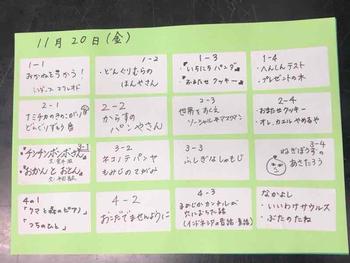 11月20日(金)
1-1
おかねをつかう!
1-2
・どんぐりむらの
ほんやさん
1-3
・いちにちパンダ
・おまたせクッキー
1-4
・へんしんテスト
・プレゼントの木
2-1
どんぐりずもう
2-2
からすの
パンやさん
2-3
世界を救え
2-4
・おまたせクッキー
・オレ、カエルやめるや
3-1
・チンチンボンボさん
・おかんとおとん
3-2
・ネコノテパンヤ
・もみじのてがみ
3-3
ふしぎなしゃもじ
3-4
ねぎぼうずの
あさたろう
4の1
「クマと森のピアノ」
「つちのひと」
4-2
おこだでませんように
4-3
まめじかカンチルが
穴におちる話
(インドネシアの昔話)
なかよし
・いいわけサウルス
・ぶたのたね